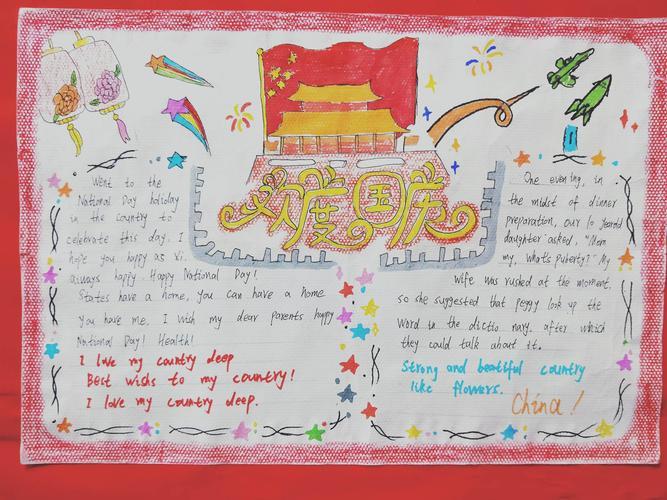 欢度国庆
Went to the
National Day holiday
in the country to
celebrate this day. I
hope you happy as xi.
always happy. Happy National Day!
States have a home, you can have a home
You have me, I wish my dear parents happy
National Day! Health!
I love my country deep
Best wishs to my country!
I love my country deep.
One evening, in
the midst of dinner
preparation, our 10 yearold
daughter asked, "Mom
my, what's puberty?" My
wife was rushed at the moment,
so she suggested that peggy look up the
word in the dictio nary. after which
they could talk about it.
Strong and beatiful country
like flowers.
China!